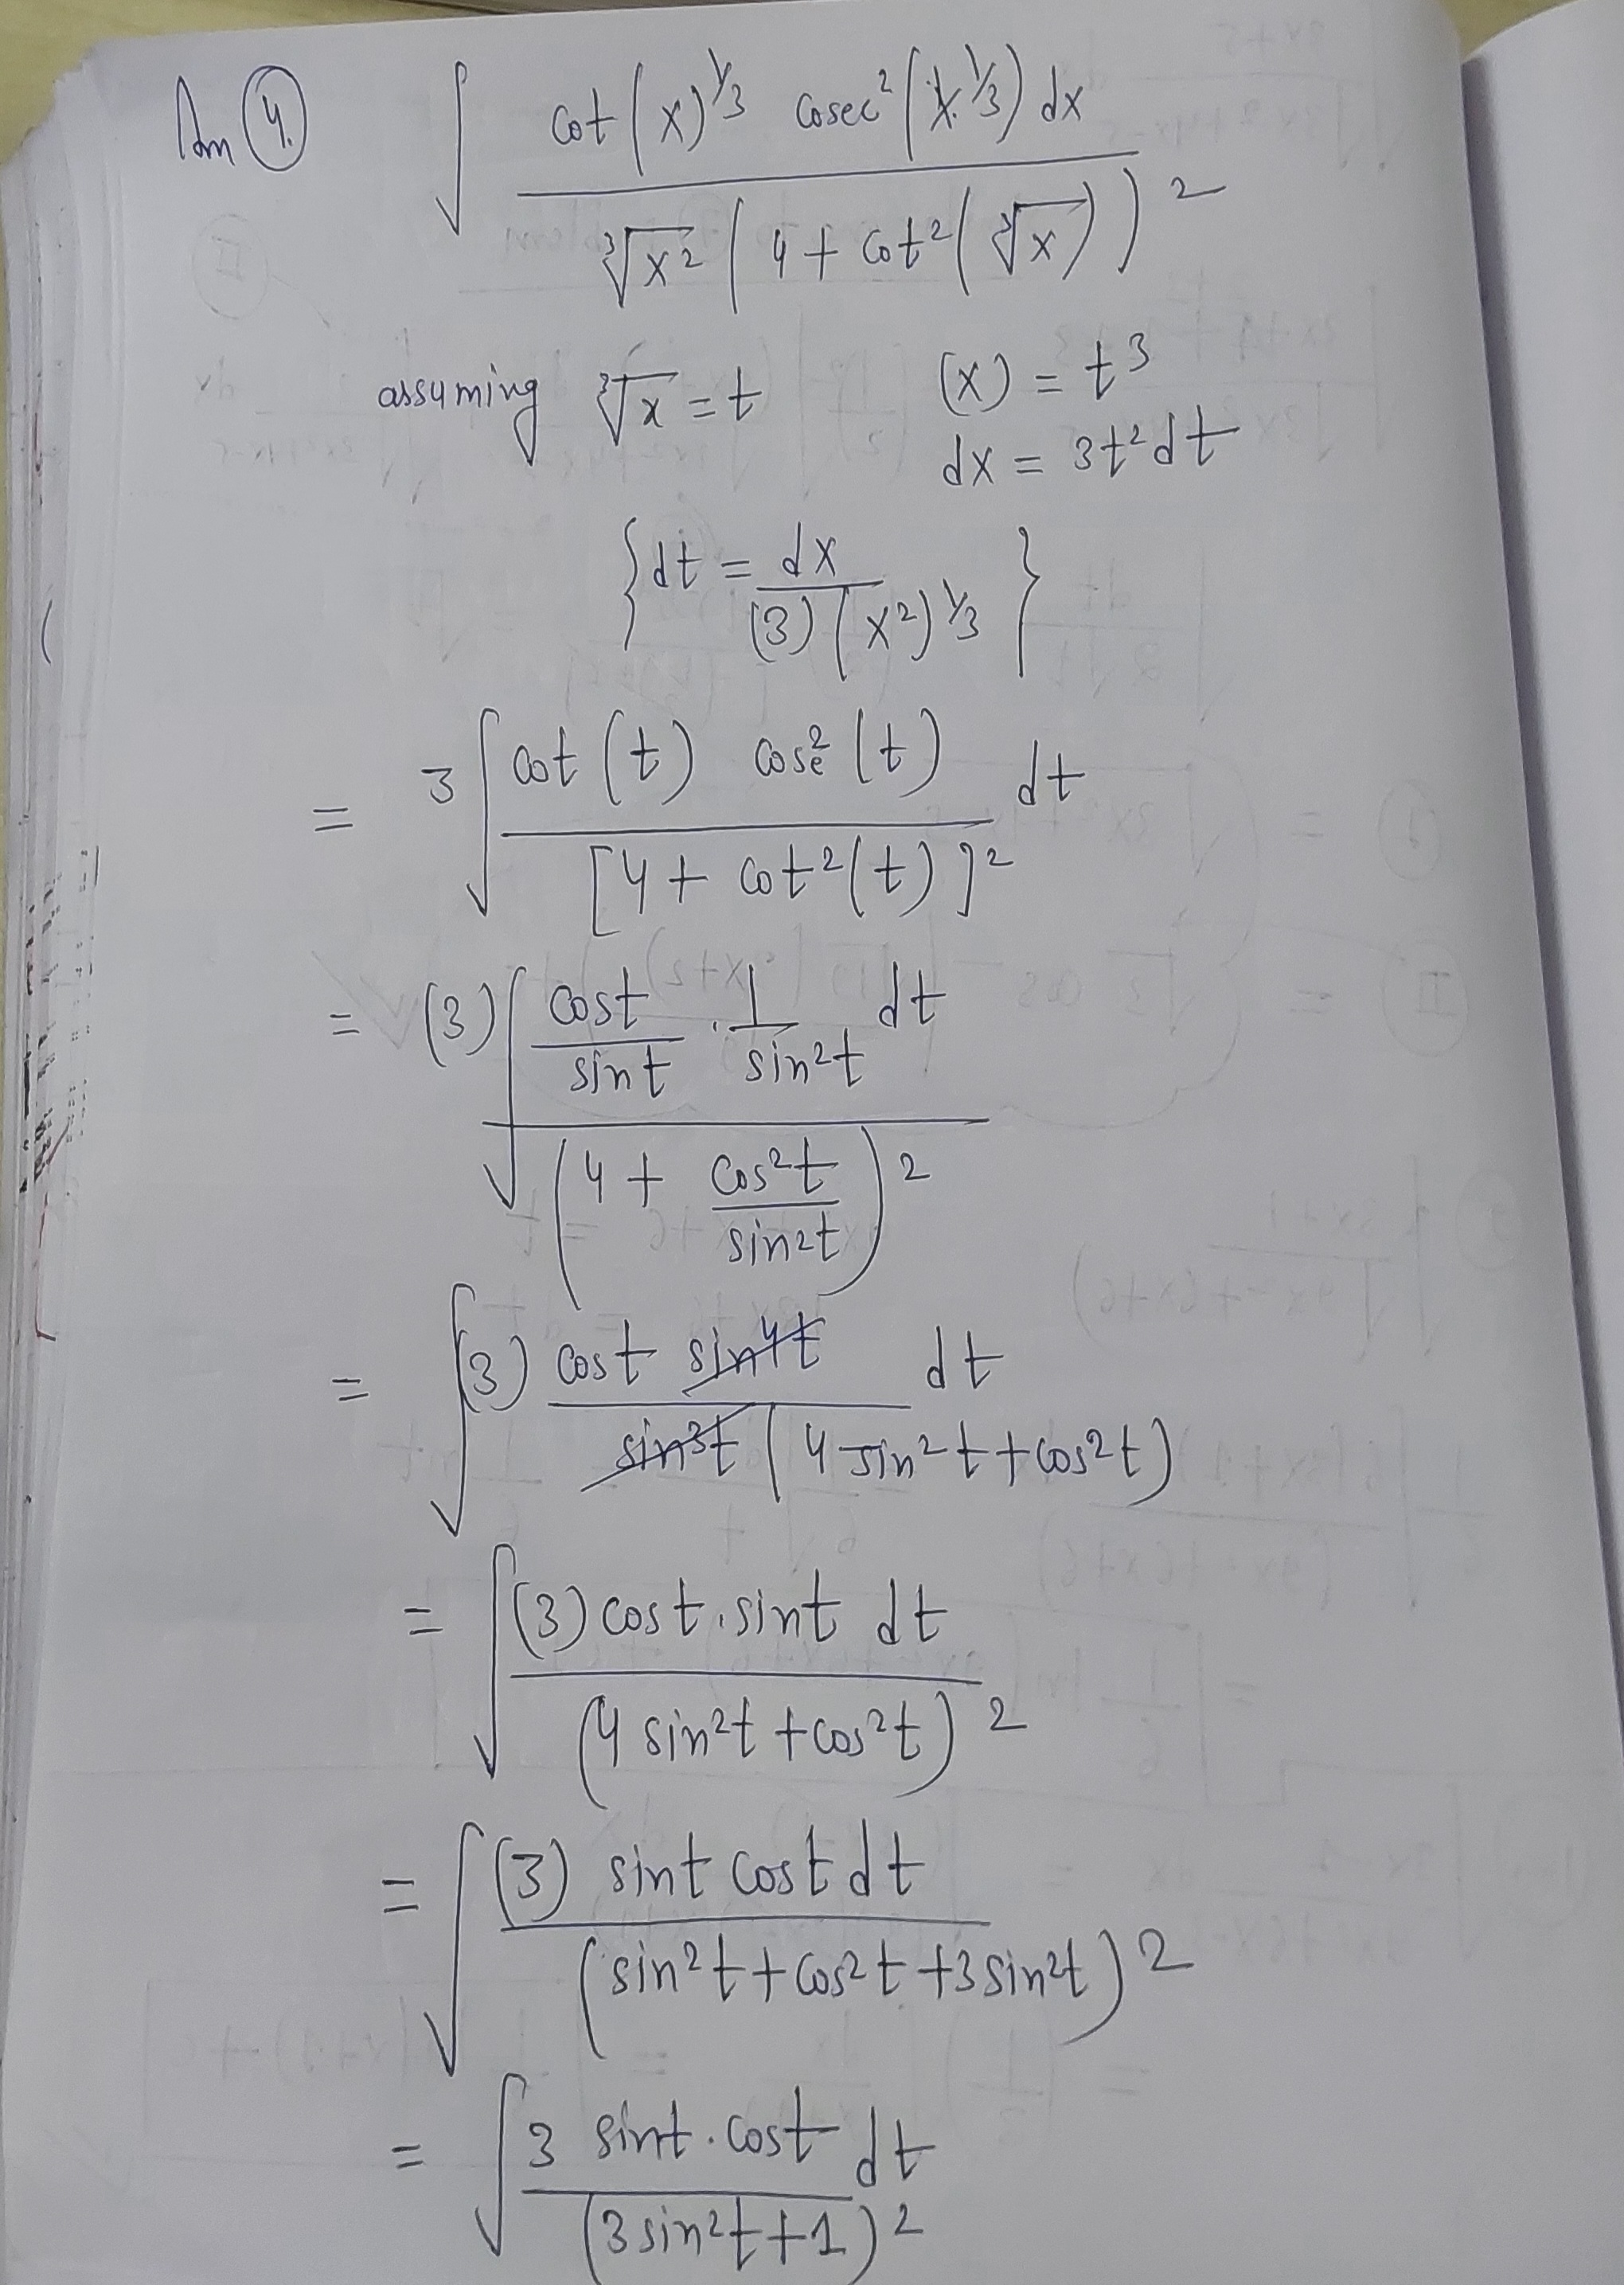 Ans 4. ∫ cot(x)^1/3 cosec²(x^1/3) dx
∛x² (4 + cot²(∛x))²
assuming ∛x = t (x) = t³
dx = 3t² dt
{ dt = dx / (3)(x²)^1/3 }
= 3 ∫ cot(t) cosec²(t) dt
[4 + cot²(t)]²
= (3) ∫ cost/sint · 1/sin²t dt
(4 + cos²t/sin²t)²
= ∫ (3) cost sin⁴t dt
sin³t (4 sin²t + cos²t)
= ∫ (3) cost · sint dt
(4 sin²t + cos²t)²
= ∫ (3) sint cost dt
(sin²t + cos²t + 3 sin²t)²
= ∫ 3 sint · cost dt
(3 sin²t + 1)²